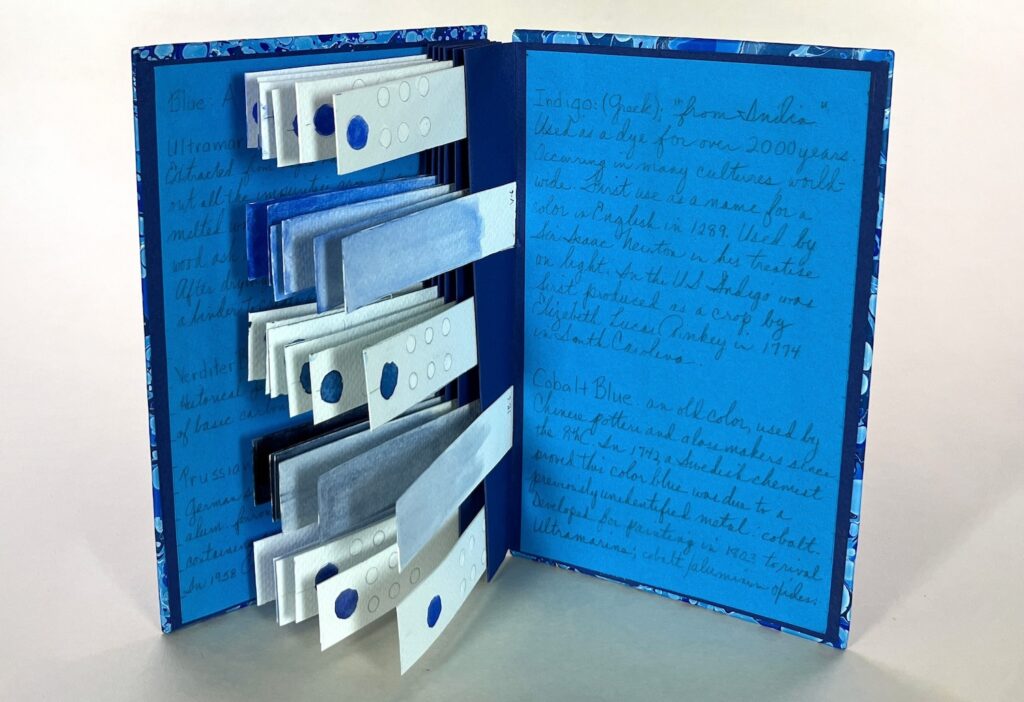 Blue: A
Ultramar
Extracted from
out all the impurities
melted
wood ash
After
a binder
Verditer B
Historical
of basic carbon
Prussian
German
alum
containing
In 1958
V-5
Indigo: (Greek); "from India"
Used as a dye for over 2000 years.
Occurring in many cultures world-
wide. First use as a name for a
color in English in 1289. Used by
Sir Isaac Newton in his treatise
on light. In the U.S. Indigo was
first produced as a crop by
Elizabeth Lucas Pinkey in 1774
in South Carolina.
Cobalt Blue. an old color, used by
Chinese potters and glass makers since
the In 1742 a Swedish chemist
proved this color blue was due to a
previously unidentified metal: cobalt.
Developed for painting in 1802 to rival
Ultramarine; cobalt/aluminum oxides.